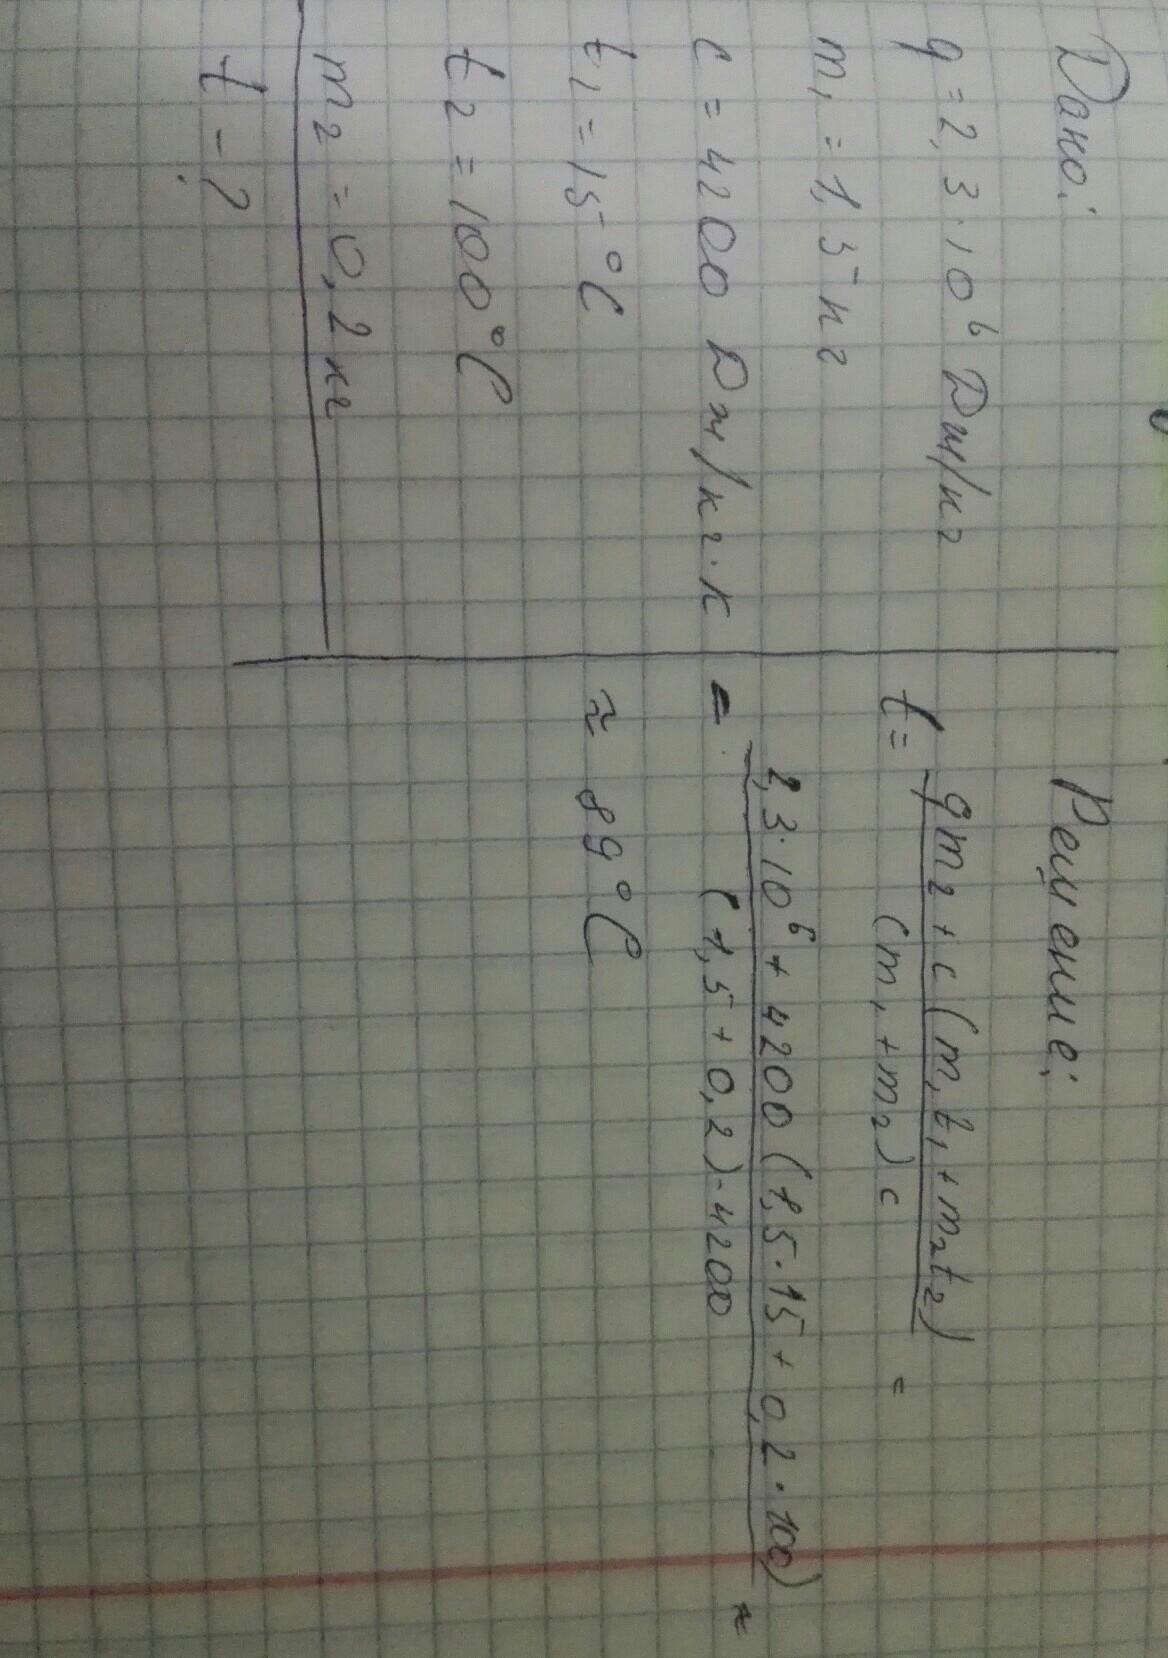 Дано:
q = 2,3·10⁶ Дж/кг
m₁ = 1,5 кг
c = 4200 Дж/кг·К
t₁ = 15°C
t₂ = 100°C
m₂ = 0,2 кг
t - ?
Решение:
t = qm₂ + c(m₁t₁ + m₂t₂) =
(m₁ + m₂)c
= 2,3·10⁶ + 4200(1,5·15 + 0,2·100) ≈
(1,5 + 0,2)·4200
≈ 89°C